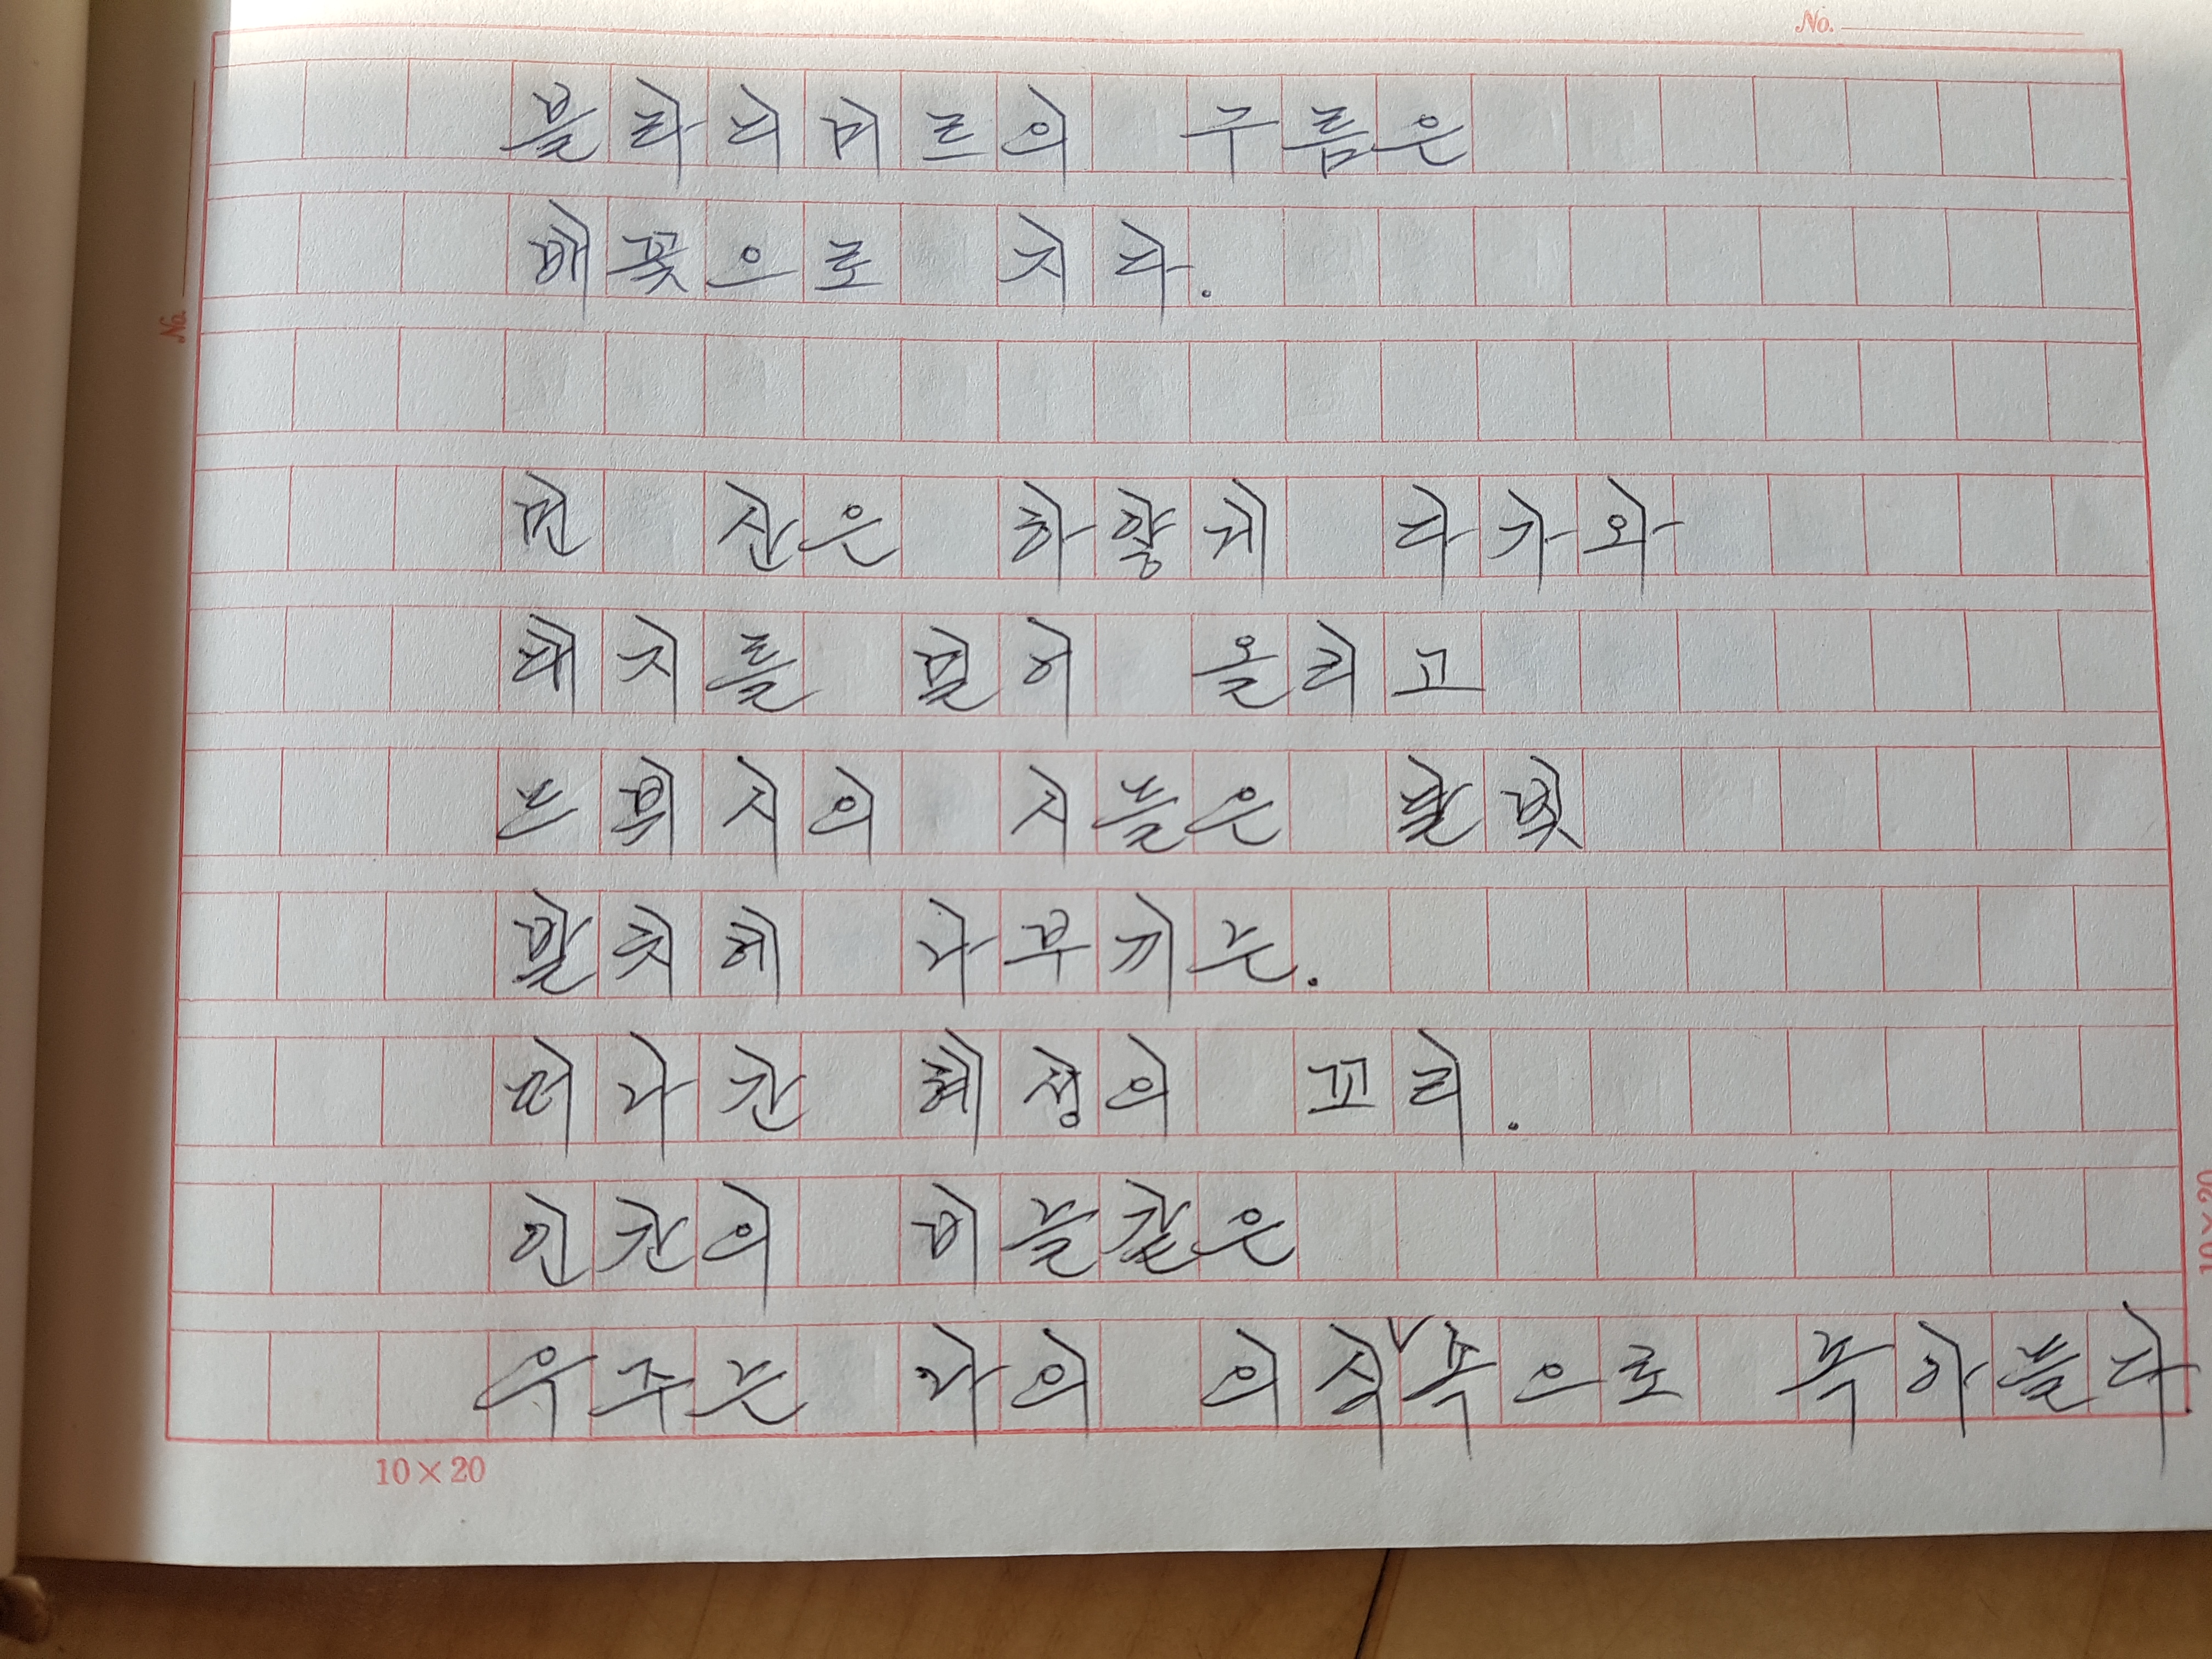 No.
블라디미르의 구름은
배꽃으로 지다.
No.
먼 산은 하얗게 다가와
대지를 밀어 올리고
드뷔시의 시들은 달빛
발치에 나부끼는.
떠나간 혜성의 꼬리.
인간의 비늘같은
우주는 나의 의식 속으로 녹아들다
10×20
10×20